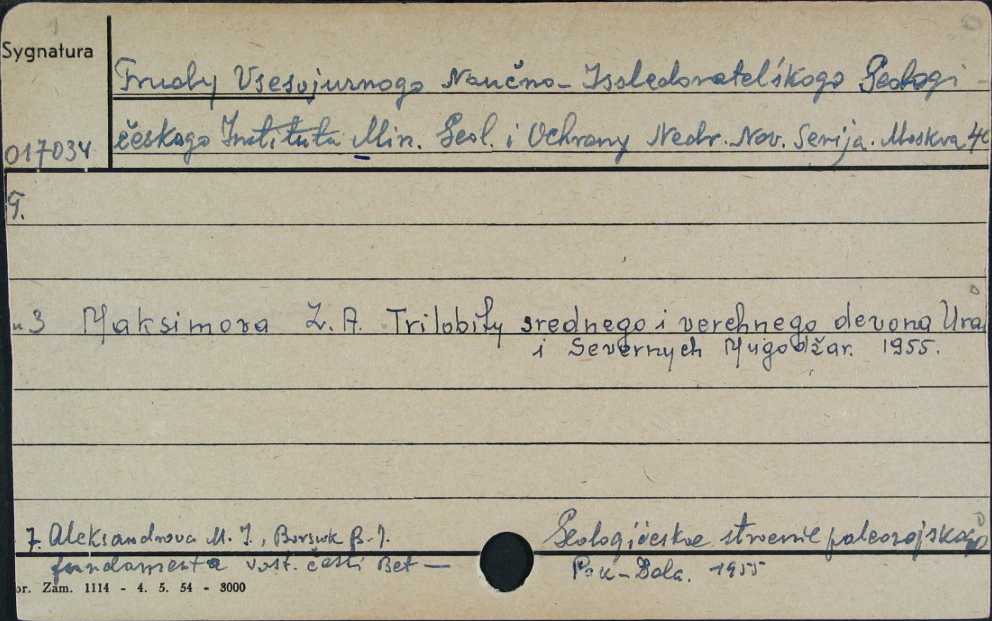 Sygnatura
Trudy Vsesojuznogo Naučno-Issledovatelśkogo Geologi-
českogo Instituta Min. Geol. i Ochrany Nedr. Nov. Serija. Moskva 40
017034
T.
3 Maksimova Z. A. Trilobity srednego i verchnego devona Ura
i Severnych Mugodžar. 1955.
7. Aleksandrova M. I., Borsuk B. I. Geologičeskoe stroenie paleozojskogo
fundamenta vost. česti Bet-Pak-Dala. 1955
or. Zam. 1114 - 4. 5. 54 - 3000